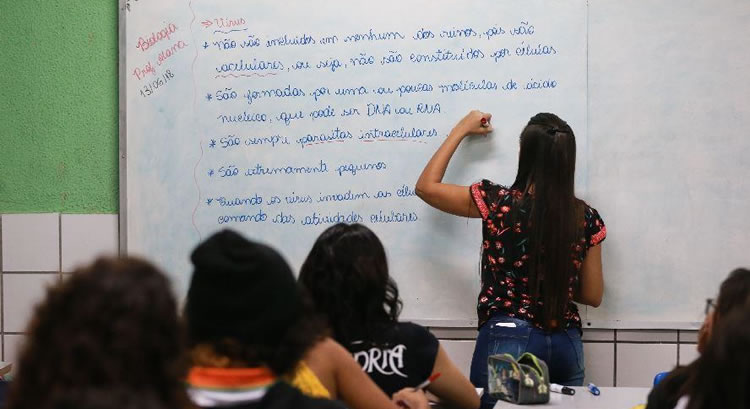 Biologia
Prof. Maria
13/06/18
⇒ Vírus
* não são incluídos em nenhum dos reinos, pois são
acelulares, ou seja, não são constituídos por células
* São formados por uma ou poucas moléculas de ácido
nucleico, que pode ser DNA ou RNA
* São sempre parasitas intracelulares
* São extremamente pequenos
* Quando os vírus invadem as célu
comando das atividades celulares
DRIA